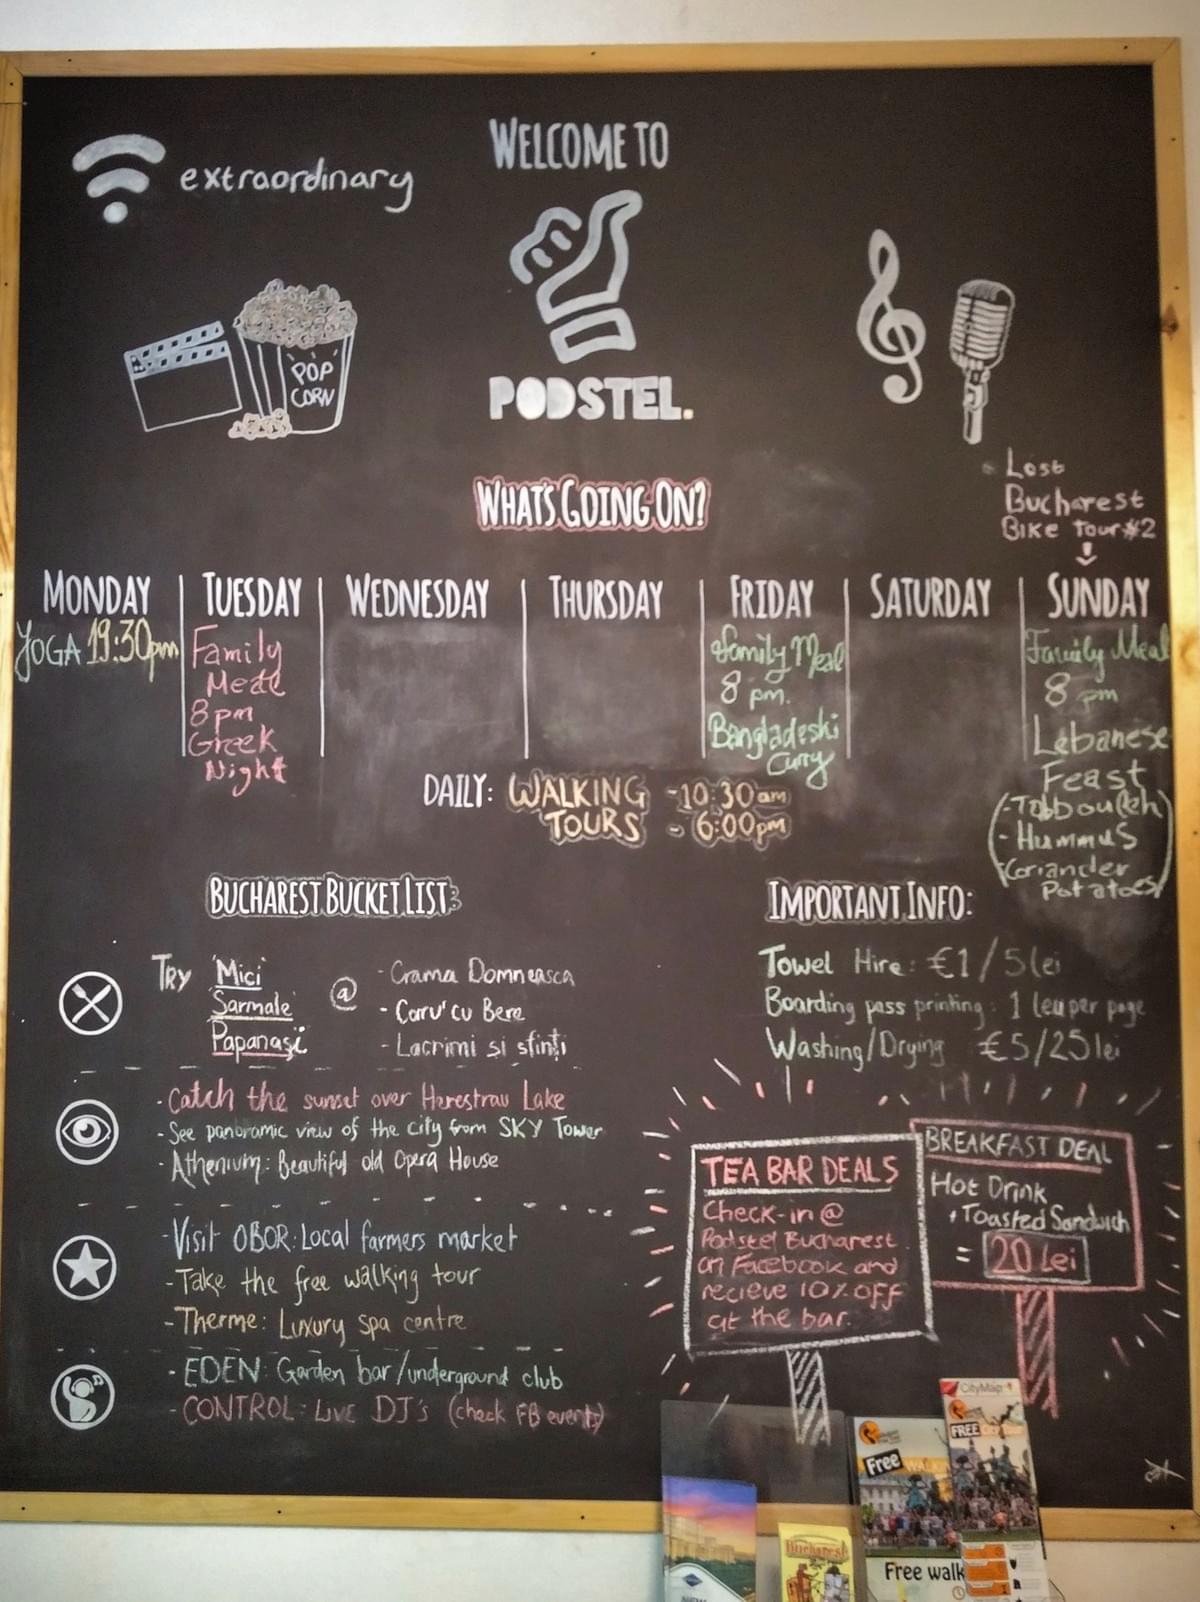 extraordinary
WELCOME TO
POP
CORN
PODSTEL.
Lost
Bucharest
Bike Tour #2
WHAT'S GOING ON?
MONDAY
YOGA 19:30pm
TUESDAY
Family
Meal
8pm
Greek
Night
WEDNESDAY
THURSDAY
FRIDAY
Family Meal
8 pm.
Bangladeshi
Curry
SATURDAY
SUNDAY
Family Meal
8 pm
Lebanese
Feast
(-Tabbouleh)
- Hummus
Coriander
Potatoes)
DAILY: WALKING -10:30am
TOURS - 6:00pm
BUCHAREST BUCKET LIST:
TRY 'Mici' @ - Crama Domneasca
Sarmale' - Carru' cu Bere
Papanași - Lacrimi si sfinți
- Catch the sunset over Herestrau Lake
- See panoramic view of the city from SKY Tower
- Athenium: Beautiful old Opera House
- Visit OBOR: Local farmers market
- Take the free walking tour
- Therme: Luxury spa centre
- EDEN: Garden bar/underground club
- CONTROL: LIVE DJ's (check FB events)
IMPORTANT INFO:
Towel Hire: €1/5lei
Boarding pass printing: 1 leu per page
Washing/Drying €5/25lei
TEA BAR DEALS
Check-in @
Podstel Bucharest
on Facebook and
recieve 10% OFF
at the bar.
BREAKFAST DEAL
Hot Drink
+Toasted Sandwich
= 20 Lei
CityMap
FREE
Free WALK
Bucharest
Free walk